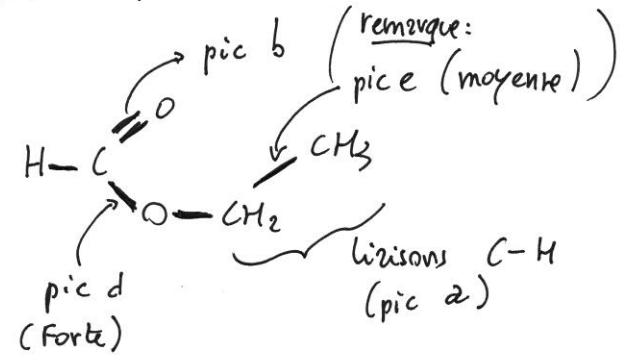 pic b
(remarque:
pic e (moyenne))
O
CH3
H-C
O-CH2
liaisons C-H
(pic a)
pic d
(Forte)